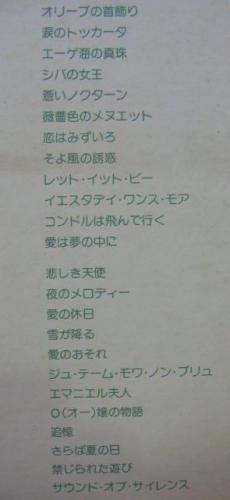 オリーブの首飾り
涙のトッカータ
エーゲ海の真珠
シバの女王
蒼いノクターン
薔薇色のメヌエット
恋はみずいろ
そよ風の誘惑
レット・イット・ビー
イエスタデイ・ワンス・モア
コンドルは飛んで行く
愛は夢の中に
悲しき天使
夜のメロディー
愛の休日
雪が降る
愛のおそれ
ジュ・テーム・モワ・ノン・プリュ
エマニエル夫人
O(オー)嬢の物語
追憶
さらば夏の日
禁じられた遊び
サウンド・オブ・サイレンス